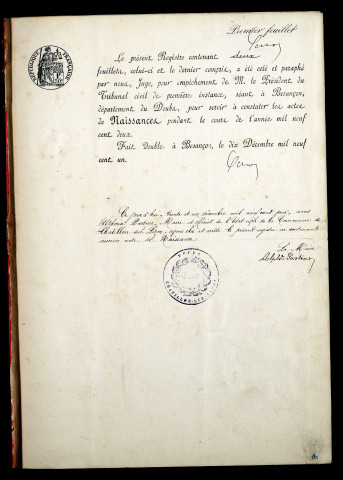 Premier feuillet
Le présent Registre contenant deux
feuillets, celui-ci et le dernier compris, a été coté et paraphé
par nous, Juge, pour empêchement de M. le Président du
Tribunal civil de première instance, séant à Besançon,
département du Doubs, pour servir à constater les actes
de Naissances pendant le cours de l'année mil neuf
cent deux.
Fait double à Besançon, le dix Décembre mil neuf
cent un.
trente et un décembre mil neuf cent
Maire et officier de l'état civil de la Commune de
Châtillon le présent registre ne contenant
aucun acte de Naissance
Le Maire